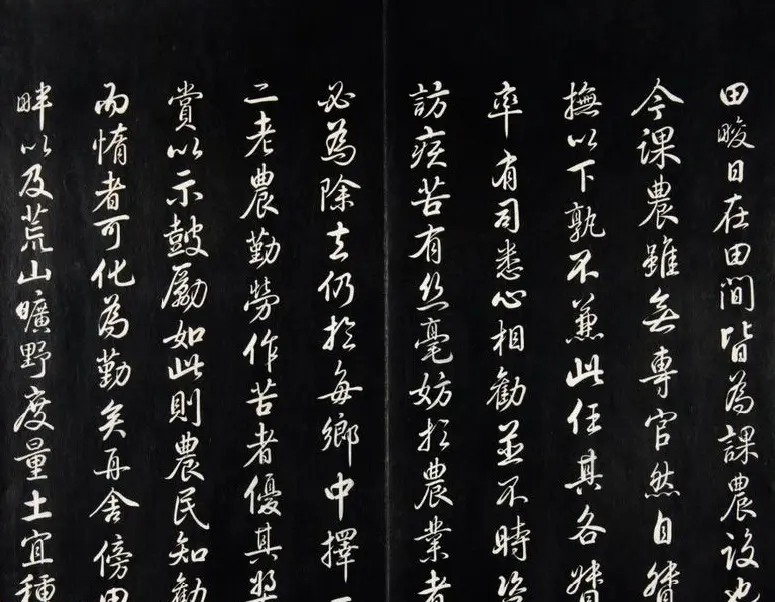 田畯日在田間皆為課農設也
今課農雖無專官然自督
撫以下孰不兼此任其各督
率有司悉心相勸並不時咨
訪疾苦有絲毫妨於農業者
必為除去仍於每鄉中擇一
二老農勤勞作苦者優其奬
賞以示鼓勵如此則農民知勸
而惰者可化為勤矣再舍傍田
畔以及荒山曠野度量土宜種